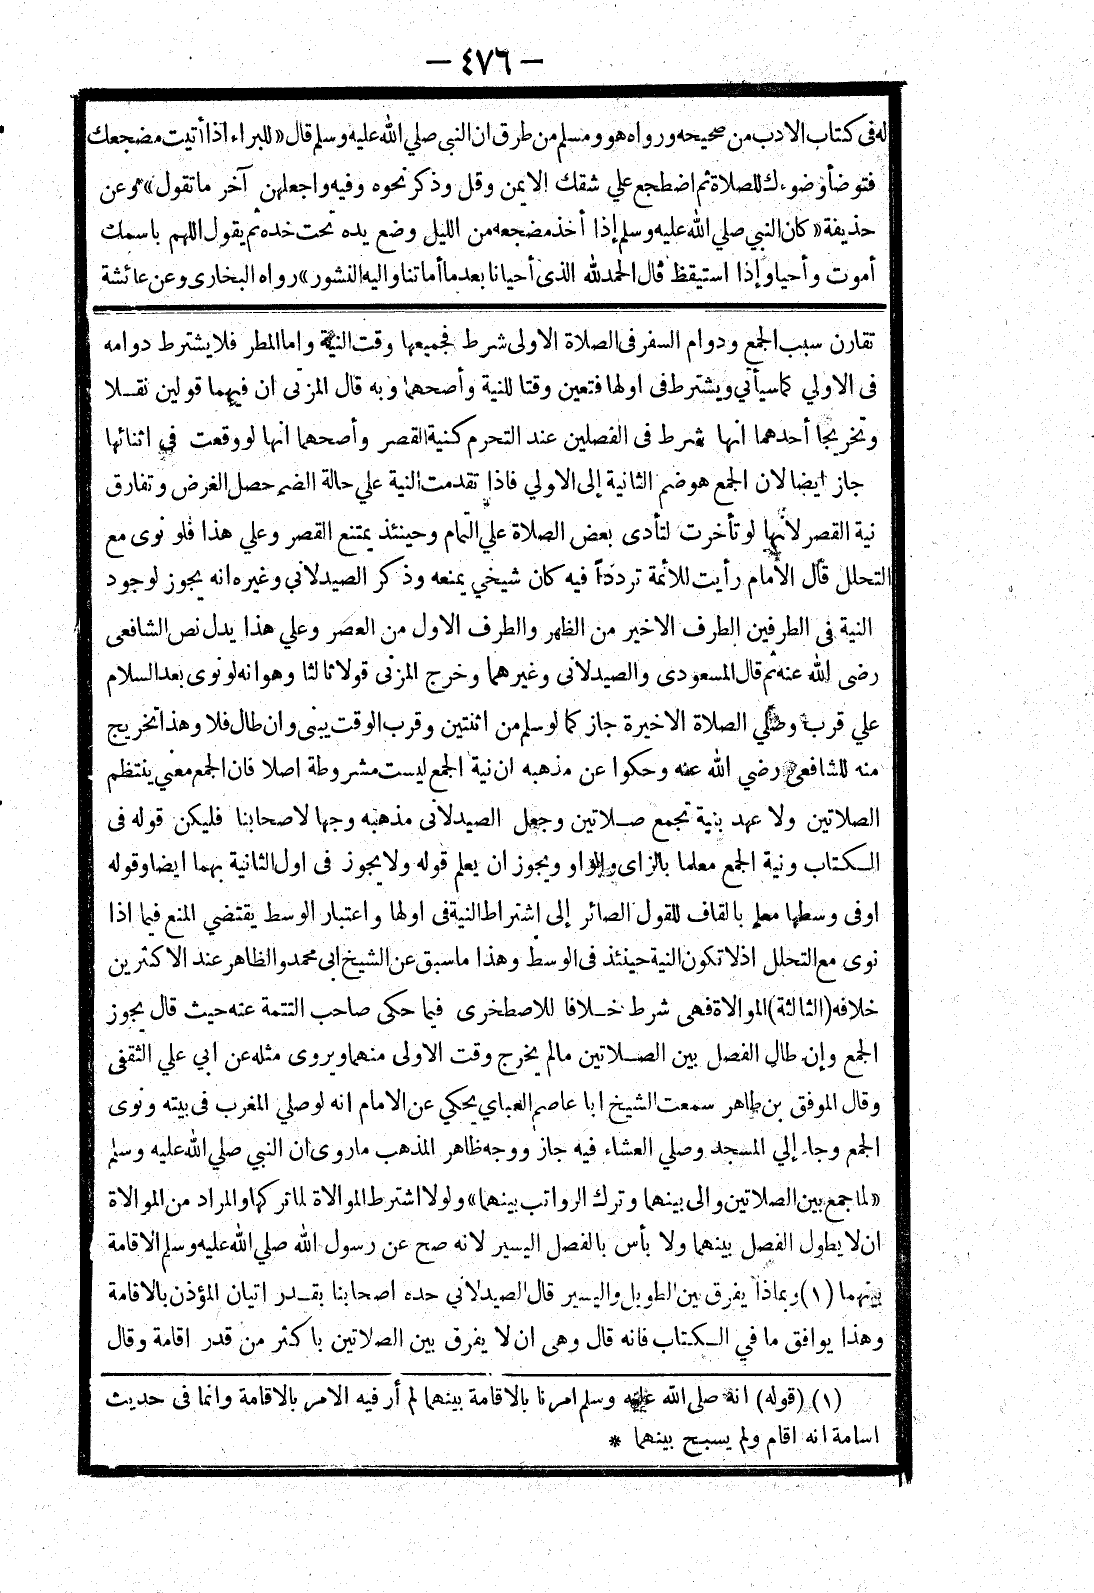 — ٤٧٦ —
له فى كتاب الادب من صحيحه ورواه هو ومسلم من طرق ان النبى صلي الله عليه وسلم قال « للبراء اذا أتيت مضجعك
فتوضأ وضوءك للصلاة ثم اضطجع علي شقك الايمن وقل وذكر نحوه وفيه واجعلهن آخر ما تقول » وعن
حذيفة « كان النبي صلي الله عليه وسلم إذا أخذ مضجعه من الليل وضع يده تحت خده ثم يقول اللهم باسمك
أموت وأحيا وإذا استيقظ قال الحمد لله الذى أحيانا بعد ما أماتنا واليه النشور » رواه البخارى وعن عائشة
تقارن سبب الجمع ودوام السفر فى الصلاة الاولى شرط فجميعها وقت النية واما المطر فلا يشترط دوامه
فى الاولي كما سيأتي ويشترط فى اولها فتعين وقتا للنية وأصحهما وبه قال المزنى ان فيهما قولين نقـلا
وتخريجا أحدهما انها شرط فى الفصلين عند التحرم كنية القصر وأصحهما انها لو وقعت في اثنائها
جاز ايضا لان الجمع هو ضم الثانية إلى الاولي فاذا تقدمت النية علي حالة الضم حصل الغرض وتفارق
نية القصر لأنها لو تأخرت لتأدى بعض الصلاة علي التمام وحينئذ يمتنع القصر وعلي هذا فلو نوى مع
التحلل قال الأمام رأيت للأئمة ترددا فيه كان شيخي يمنعه وذكر الصيدلاني وغيره انه يجوز لوجود
النية فى الطرفين الطرف الاخير من الظهر والطرف الاول من العصر وعلي هذا يدل نص الشافعى
رضى الله عنه ثم قال المسعودى والصيدلانى وغيرهما وخرج المزنى قولا ثالثا وهو انه لو نوى بعد السلام
علي قرب وصلي الصلاة الاخيرة جاز كما لو سلم من اثنتين وقرب الوقت يبنى وان طال فلا وهذا تخريج
منه للشافعي رضي الله عنه وحكوا عن مذهبه ان نية الجمع ليست مشروطة اصلا فان الجمع معني ينتظم
الصلاتين ولا عهد بنية تجمع صـلاتين وجعل الصيدلانى مذهبه وجها لاصحابنا فليكن قوله فى
الـكتاب ونية الجمع معلما بالزاى والواو ويجوز ان يعلم قوله ولا يجوز فى اول الثانية بهما ايضا وقوله
او فى وسطها معلم بالقاف للقول الصائر إلى إشتراط النية فى اولها واعتبار الوسط يقتضي المنع فيما اذا
نوى مع التحلل اذ لا تكون النية حينئذ فى الوسط وهذا ما سبق عن الشيخ ابى محمد والظاهر عند الاكثرين
خلافه (الثالثة) الموالاة فهى شرط خـلافا للاصطخرى فيما حكى صاحب التتمة عنه حيث قال يجوز
الجمع وإن طال الفصل بين الصـلاتين ما لم يخرج وقت الاولى منهما ويروى مثله عن ابي علي الثقفى
وقال الموفق بن طاهر سمعت الشيخ ابا عاصم العبادي يحكي عن الامام انه لو صلي المغرب فى بيته ونوى
الجمع وجاء إلي المسجد وصلي العشاء فيه جاز ووجه ظاهر المذهب ما روى ان النبي صلي الله عليه وسلم
« لما جمع بين الصلاتين والى بينهما وترك الرواتب بينهما » ولولا اشتراط الموالاة لما تركها والمراد من الموالاة
ان لا يطول الفصل بينهما ولا بأس بالفصل اليسير لانه صح عن رسول الله صلي الله عليه وسلم الاقامة
بينهما (١) وبماذا يفرق بين الطويل واليسير قال الصيدلاني حده اصحابنا بقـدر اتيان المؤذن بالاقامة
وهذا يوافق ما في الـكتاب فانه قال وهى ان لا يفرق بين الصلاتين باكثر من قدر اقامة وقال
(١) (قوله) انه صلى الله عليه وسلم امرنا بالاقامة بينهما لم أر فيه الامر بالاقامة وانما فى حديث
اسامة انه اقام ولم يسبح بينهما *